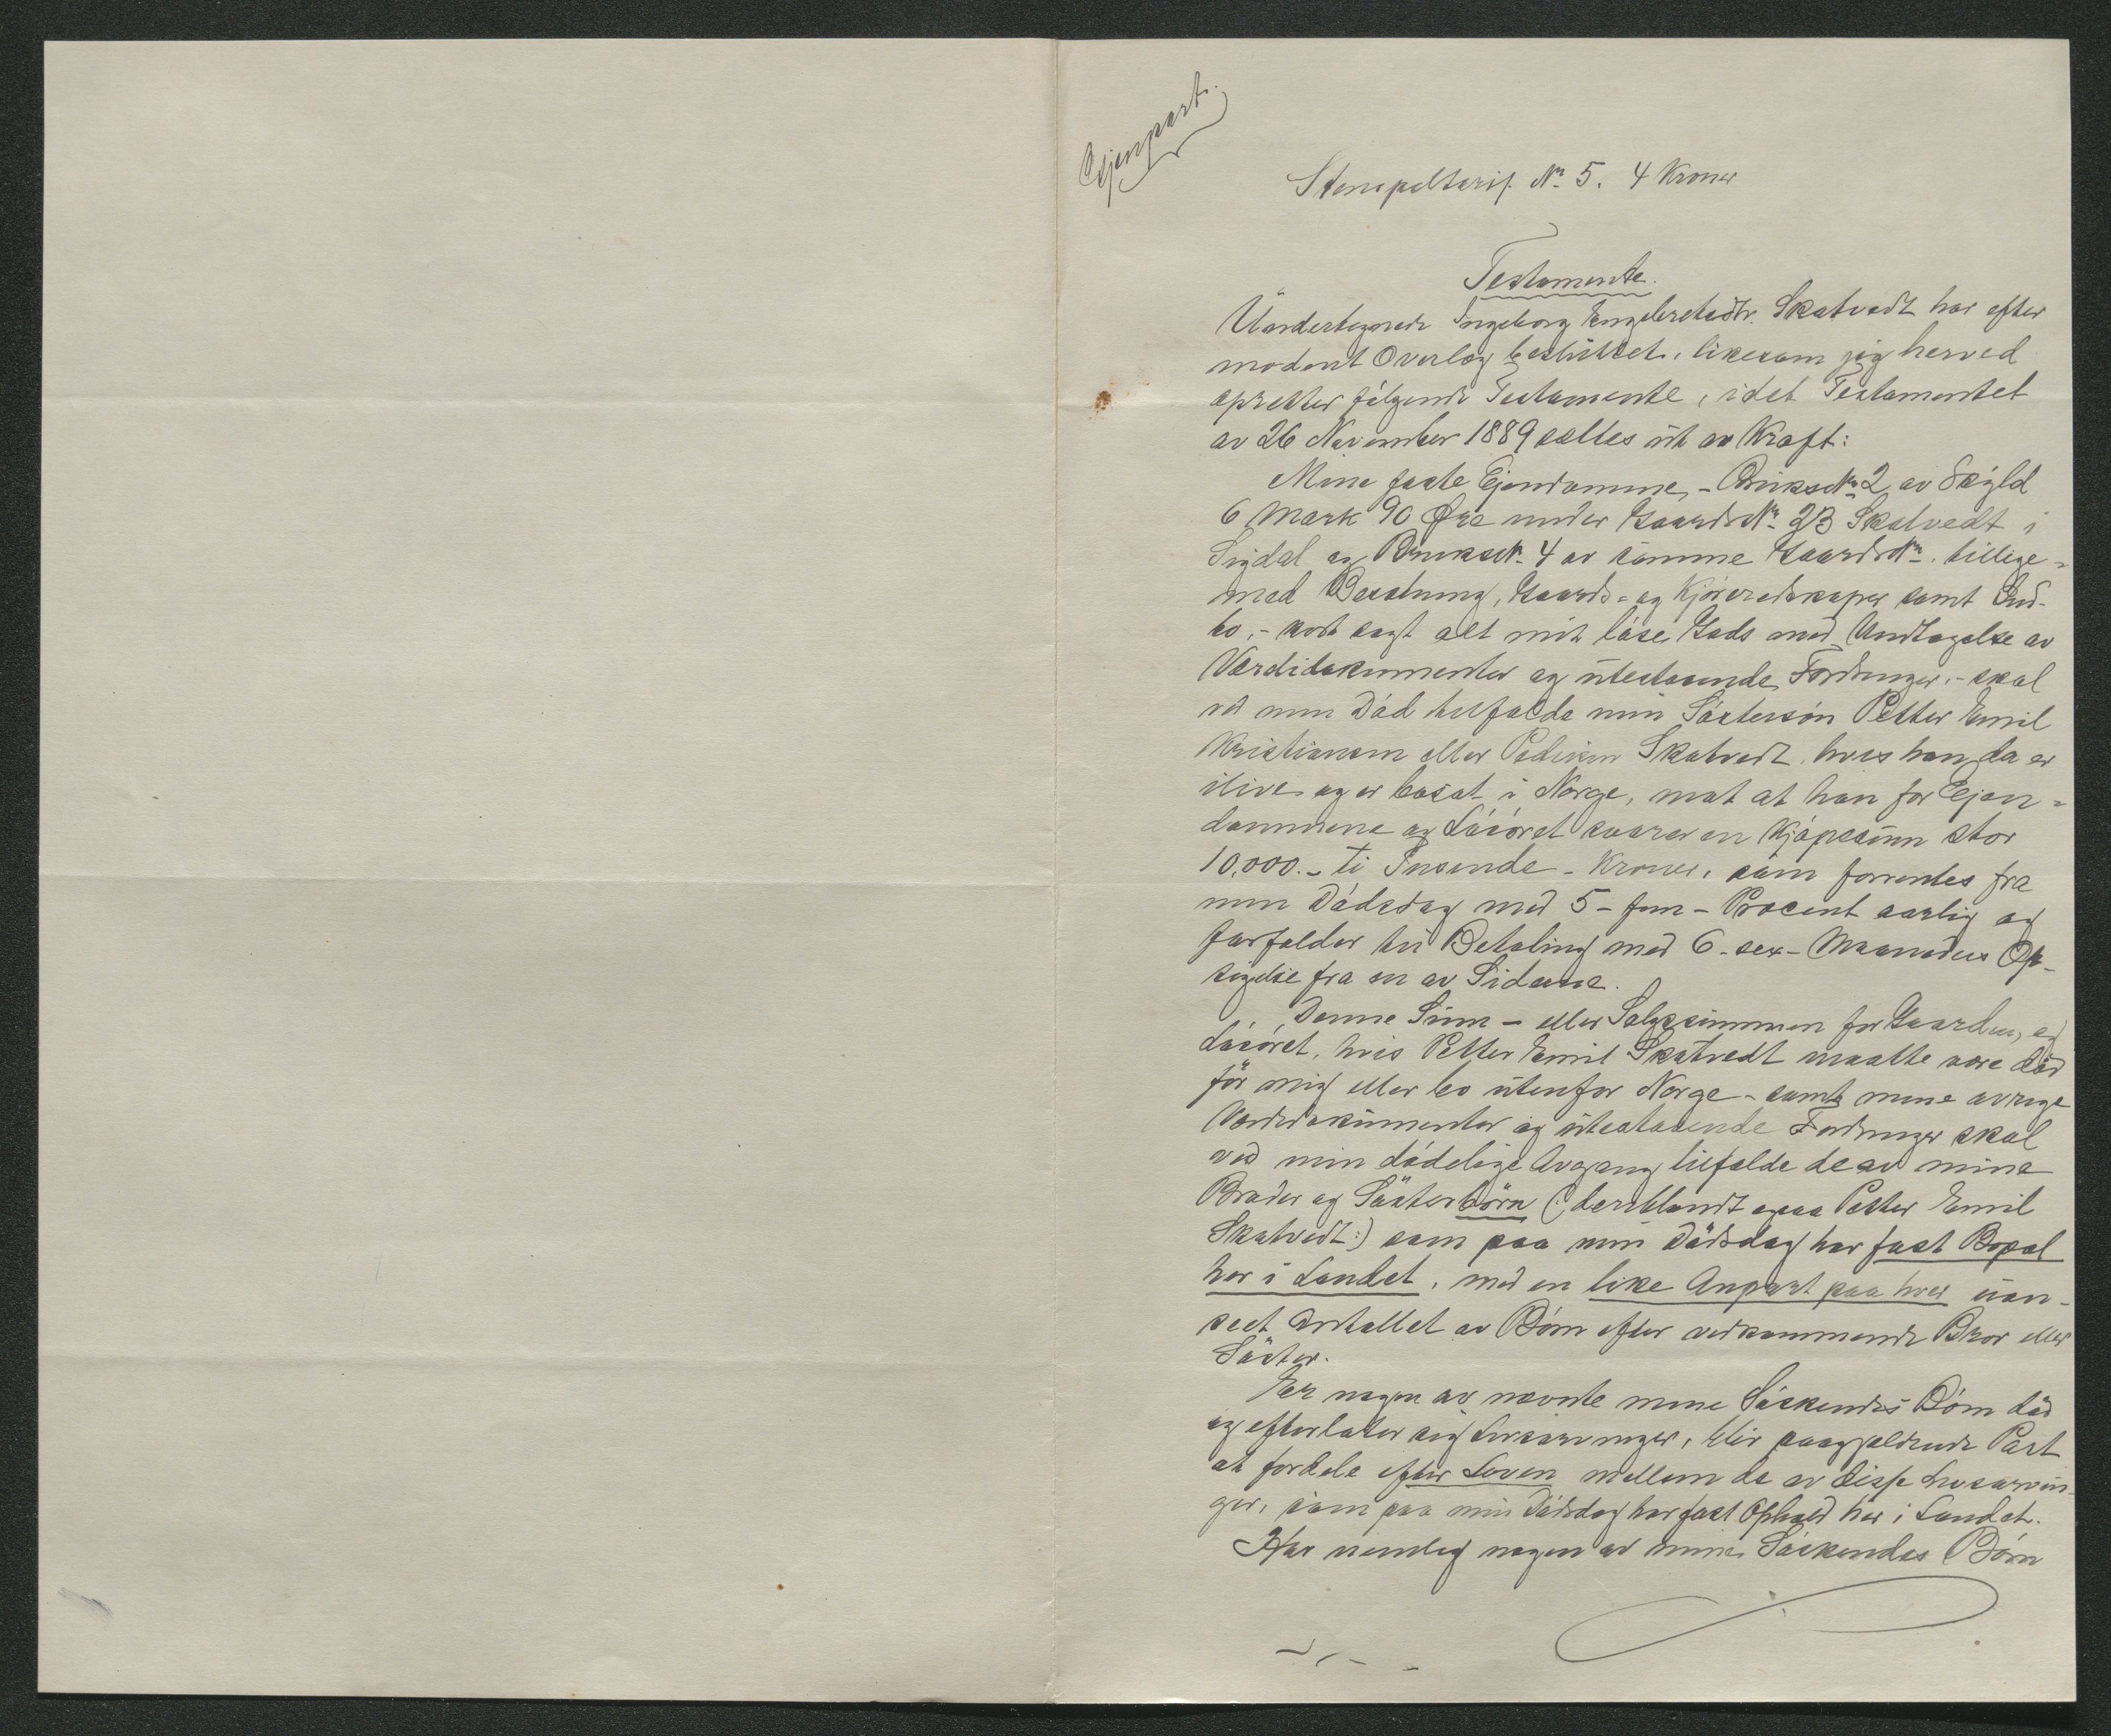 Gjenpart.
Stempeltarif. Nr. 5. 4 Kroner
Testamente.
Undertegnede Ingeborg Engebretsdtr. Skatvedt har efter
modent Overlæg besluttet, likesom jeg herved
opretter følgende Testamente, idet Testamentet
av 26 November 1889 sættes ut av Kraft:
Mine faste Ejendomme, - Bruksnr. 2 av Skyld
6 Mark 90 Øre under Gaards Nr. 23 Skatvedt i
Sigdal og Bruksnr. 4 av samme Gaards Nr. tillige=
med Besætning, Gaards= og Kjøreredskaper samt Ind-
bo, - kort sagt alt mit løse Gods med Undtagelse av
Værdidokumenter og utestaaende Fordringer, - skal
ved min Død tilfalde min Søstersøn Petter Emil
Kristiansen eller Pedersen Skatvedt, hvis han da er
ilive og er bosat i Norge, mot at han for Ejen=
dommene og Løsøret svarer en Kjøpesum stor
10,000.- ti Tusende - Kroner, som forrentes fra
min Dødsdag med 5 - fem - Procent aarlig og
forfalder til Betaling med 6 - sex - Maaneders Op-
sigelse fra en av Siderne.
Denne Sum - eller Salgssummen for Gaarden og
Løsøret, hvis Petter Emil Skatvedt maatte være død
før mig eller bo utenfor Norge - samt mine øvrige
Værdidokumenter og utestaaende Fordringer skal
ved min dødelige Avgang tilfalde de av mine
Broder og Søsterbørn (: deriblandt ogsaa Petter Emil
Skatvedt :) som paa min Dødsdag har fast Bopæl
her i Landet, med en like Anpart paa hver uan-
seet Antallet av Børn efter vedkommende Bror eller
Søster.
Er nogen av nævnte mine Søskendes Børn død
og efterlater sig Livsarvinger, blir paagjældende Part
at fordele efter Loven mellem de av disse Livsarvin-
ger, som paa min Dødsdag har fast Ophold her i Landet.
Har nemlig nogen av mine Søskendes Børn